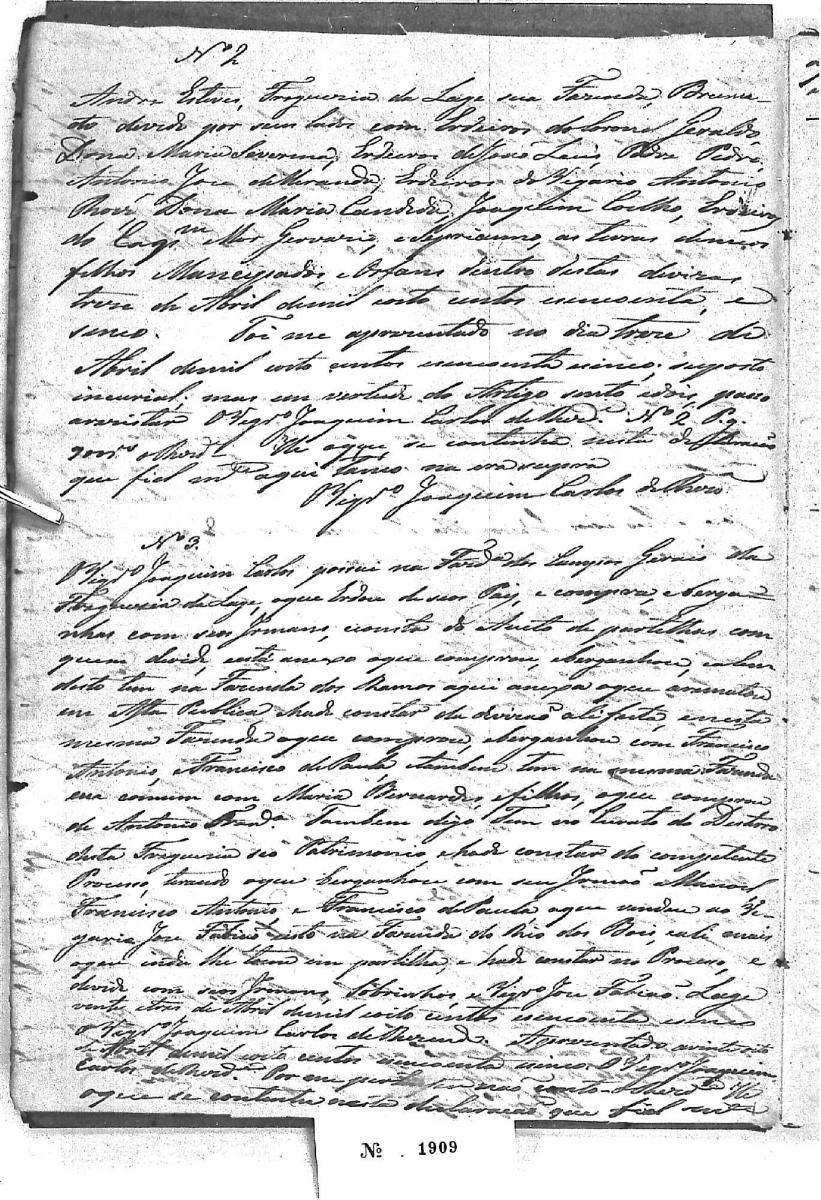 Nº 2
Andre Esteves, Freguezia da Lage sua Fazenda Bruma-
do devide por seus lados com Erdeiros do Coronel Geraldo,
Dona Maria Severina, Erdeiros de Jose Luis, Padre Pedro,
Antonio Jose de Miranda, Erdeiros do Vigario Antonio
Dona Maria Candida, Joaquim Coelho, Erdeiros
do Capm Mor Gervazio, e Sepriano, as terras de meos
filhos Mancipados, e Orfans dentro destas divizas
treze de Abril de mil oito centos e sincoenta, e
sinco. Foi me aprezentado no dia treze de
Abril de mil oito centos e sincoenta e sinco; suposto
incurial; mas em vertude do Artigo sento e dois, passo
O Vigro Joaquim Carlos de Nº 2 P. g.
He o que se contenha nesta declaração
que fiel mte aqui lanço na era supra
O Vigro Joaquim Carlos de
Nº 3.
O Vigro Joaquim Carlos possui na Fazda dos Campos Gerais da
Freguezia da Lage, o que Erdou de seos Pais, e compras, e bergan-
has com seos Irmans, e consta do Auto de partilhas com
quem devide, e está anexo o que comprou, e berganhou, e alem
disto tem na Fazenda dos Ramos aqui anexa o que arematou
em Asta Publica, e hade constar da divizão ali feita, e nesta
mesma Fazenda o que comprou, e berganhou com Francisco
Antonio, e Francisco de Paula e tambem tem na mesma Fazenda
em comum com Maria Bernardes, e filhos, o que comprou
de Antonio Tambem digo Tem no
desta Freguezia seo Patrimonio, e hade constar do competente
Processo, tirando o que berganhou com seu Irmão Manoel
Francisco Antonio, e Francisco de Paula o que vendeu ao Vi-
gario Jose Fabião isto na Fazenda do Rio dos Bois, e ali mais
o que inda lhe tem em partilha, e hade constar no Processo, e
devide com seos Irmans, Sobrinhos, e Vigro Jose Fabião. Lage
vinte e tres de Abril de mil oito centos e sincoenta e sinco
O Vigro Joaquim Carlos de Aprezentado a vinte e oito
de Abril de mil oito centos e sincoenta e sinco O Vigro Joaquim
Carlos de Por me He
o que se contenha nesta declaração que fiel mte
Nº . 1909